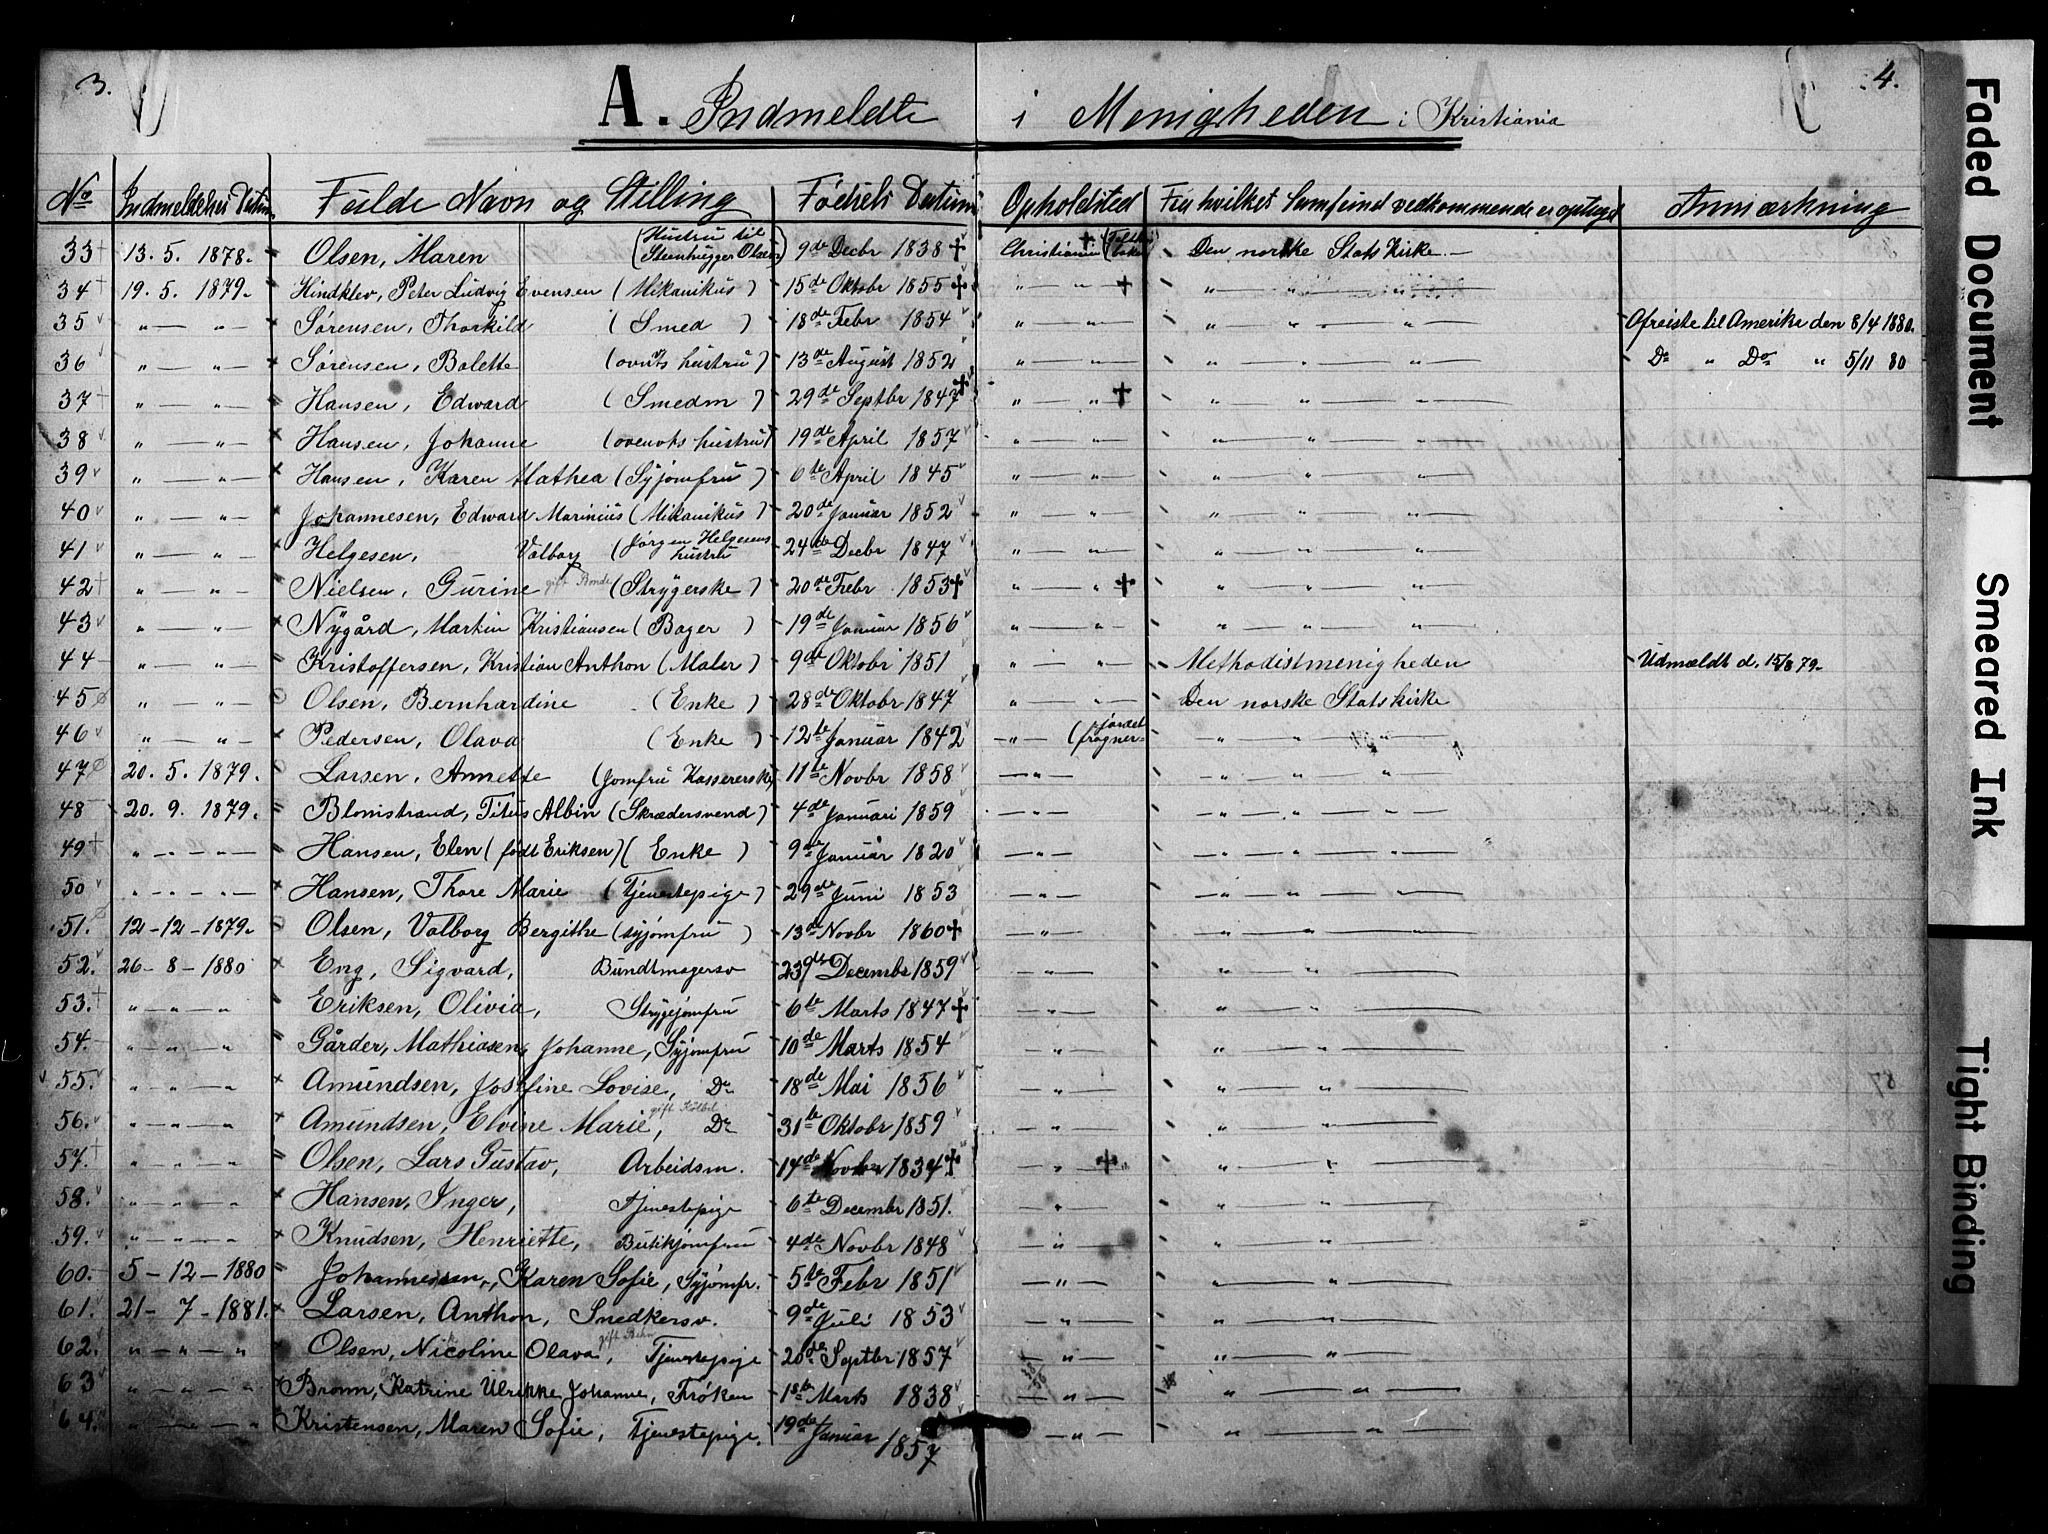 3. 4.
A. Indmeldte i Menigheden i Kristiania
No Indmeldelses Datum Fulde Navn og Stilling Fødsels Datum Opholdsted Fra hvilket Samfund vedkommende er optaget Anmærkning
33 † 13. 5. 1878. Olsen, Maren (Hustru til Stenhugger Olsen) 9de Decbr 1838 ✝ Christiania ✝ Den norske Stats Kirke —
34 † 19. 5. 1879. Hindklev, Peter Ludvig Evensen (Mikanikus) 15de Oktbr 1855 ✝ " — " ✝ " — " — "
35 " — " — Sørensen, Thorkild (Smed) 18de Febr 1854 " — " " — " — " Afreiste til Amerika den 8/4 1880.
36 " — " — Sørensen, Bolette (ovnts hustru) 13de August 1852 " — " " — " — " Do " Do " 5/11 80
37 " — " — Hansen, Edward (Smedm) 29de Septbr 1847 ✝ " — " ✝ " — " — "
38 " — " — Hansen, Johanne (ovenots hustru) 19de April 1857 " — " " — " — "
39 " — " — Hansen, Karen Mathea (Syjomfru) 6te April 1845 " — " " — " — "
40 " — " — Johannesen, Edward Marinius (Mikanikus) 20de Januar 1852 " — " " — " — "
41 " — " — Helgesen, Valborg (Jørgen Helgesens hustru) 24de Decbr 1847 " — " " — " — "
42 † " — " — Nielsen, Gurine gift Bonde (Strygerske) 20de Febr. 1853 ✝ " — " ✝ " — " — "
43 " — " — Nygård, Martin Kristiansen (Bager) 19de Januar 1856 " — " " — " — "
44 — " — " — Kristoffersen, Kristian Anthon (Maler) 9de Oktobr 1851 " — " Methodistmenigheden Udmeldt d. 15/8 79.
45 " — " — Olsen, Bernhardine (Enke) 28de Oktobr 1847 " — " Den norske Statskirke
46 " — " — Pedersen, Olava (Enke) 12te Januar 1842 — " — (frogner- jordet " — " — "
47 20. 5. 1879. Larsen, Annette (Jomfru Kassererske) 11te Novbr 1858 — " — " — " — "
48 — 20. 9. 1879. Blomstrand, Titus Albin (Skrædersvend) 4de Januari 1859 — " — " — " — "
49 † " — " — " — Hansen, Elen (født Eriksen) (Enke) 9de Januar 1820 — " — " — " — "
50 " — " — " — Hansen, Thore Marie (Tjenestepige) 29de Juni 1853 — " — " — " — "
51. 12-12-1879. Olsen, Valborg Bergithe (syjomfru) 13de Novbr 1860 ✝ — " — " — " — "
52. 26-8-1880 Eng, Sigvard, Bundtmagersv 23de Decembr 1859 — " — " — " —
53. † " — " — " Eriksen, Olivia, Strygejomfru 6te Marts 1847 ✝ — " — " — " —
54. — " — " — " Gårder, Mathiasen, Johanne, Syjomfru 10de Marts 1854 — " — " — " —
55. " — " — " Amundsen, Josefine Lovise, Do 18de Mai 1856 — " — " — " —
56. " — " — " Amundsen, Elvine Marie, gift Kølbel Do 31te Oktobr 1859 — " — " — " —
57. † " — " — " Olsen, Lars Gustav, Arbeidsm. 14de Novber 1834 ✝ — " ✝ " — " —
58. " — " — " Hansen, Inger, Tjenestepige 6te Decembr 1851. — " — " — " —
59. " — " — " Knudsen, Henriette, Butikjomfru 4de Novbr 1848 — " — " — " —
60. — 5-12-1880 Johannessen, Karen Sofie, Syjomfr. 5te Febr 1851 — " — " — " —
61. 21-7-1881. Larsen, Anthon, Snedkersv. 9de Juli 1853 — " — " — " —
62. " — " — " Olsen, Nicoline Olava, gift Behn Tjenestepige 20de Septbr 1857 — " — " — " —
63 " — " — " Bronn, Katrine Ulrikke Johanne, Frøken 1ste Marts 1838 — " — " — " —
64. " — " — " Kristensen, Maren Sofie, Tjenestepige. 19de Januar 1857 — " — " — " —
Faded Document
Smeared Ink
Tight Binding